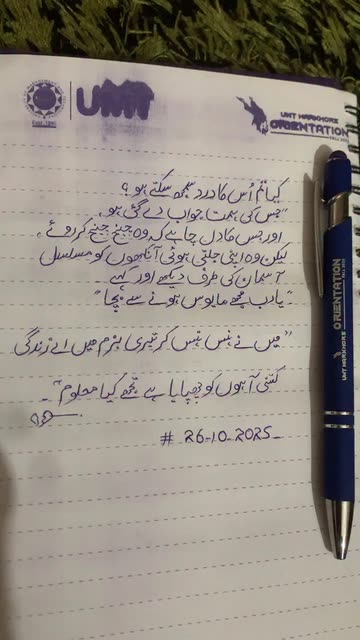 UMT
UMT MARKHORS
ORIENTATION
FALL 2025
کیا تم اُس کا درد سمجھ سکتے ہو؟
"جس کی ہمت جواب دے گئی ہو،
اور جس کا دل چاہے کہ وہ چیخ چیخ کر روئے،
لیکن وہ اپنی جلتی ہوئی آنکھوں کو مسلسل
آسمان کی طرف دیکھے اور کہے۔
"یارب مجھے مایوس ہونے سے بچا"
"میں نے ہنس ہنس کر تیری بزم میں اے زندگی
کتنی آہوں کو چھپایا ہے تجھے کیا معلوم"۔
# 26-10-2025-
UMT MARKHORS
ORIENTATION
FALL 2025